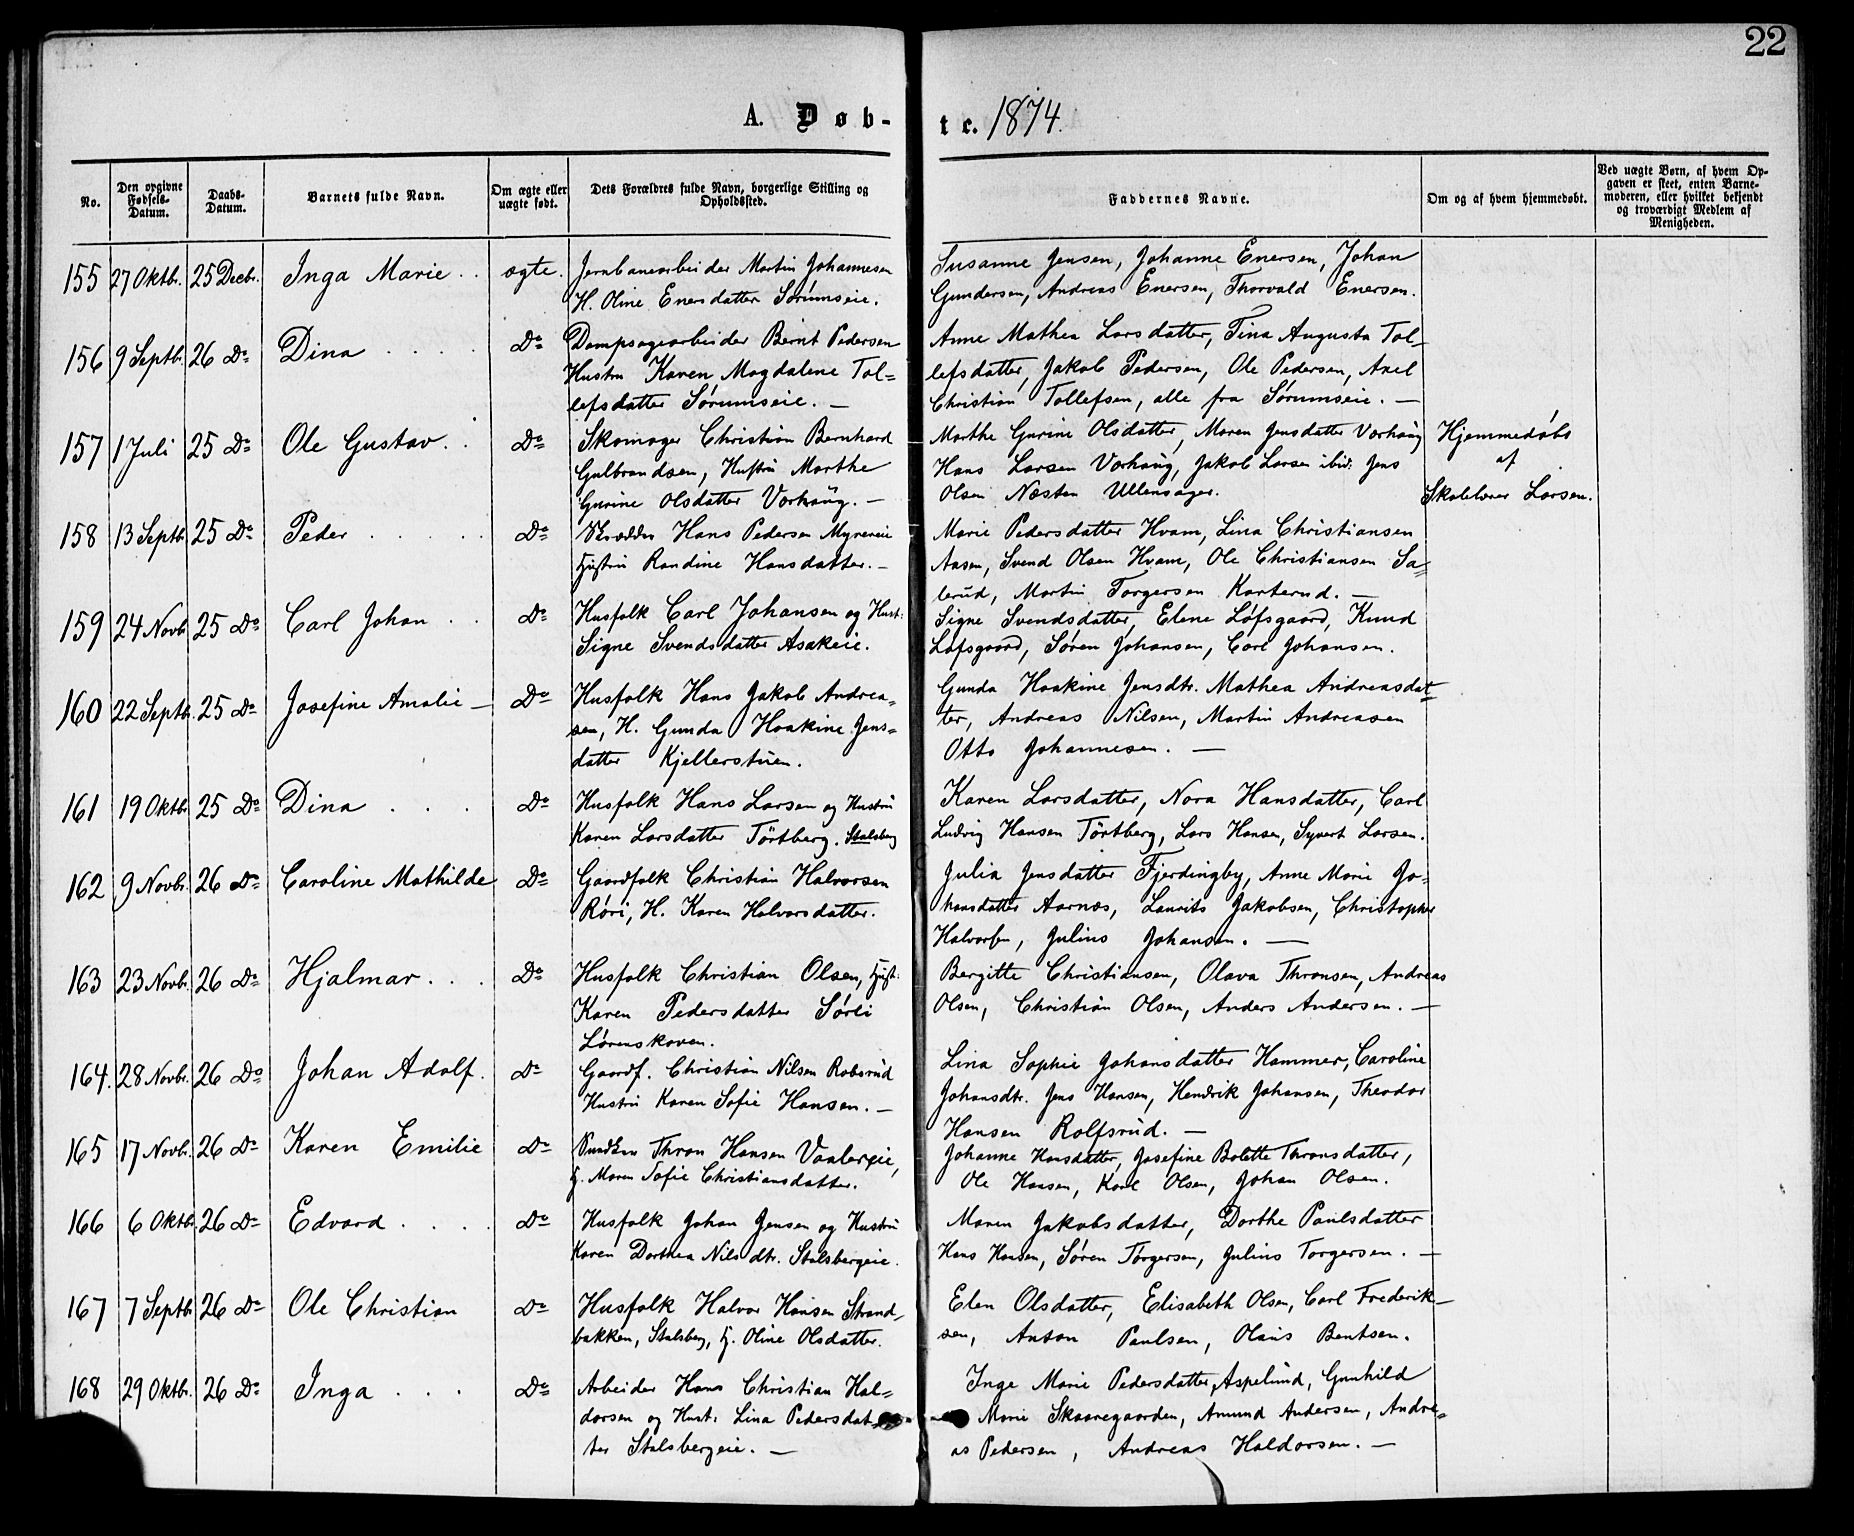 22
A. Døb-
te. 1874.
No.
Den opgivne Fødsels-Datum.
Daabs-Datum.
Barnets fulde Navn.
Om ægte eller uægte født.
Dets Forældres fulde Navn, borgerlige Stilling og Opholdssted.
Faddernes Navne.
Om og af hvem hjemmedøbt.
Ved uægte Børn, af hvem Op-
gaven er skeet, enten Barne-
moderen, eller hvilket bekjendt
og troværdigt Medlem af
Menigheden.
155 27 Oktbr. 25 Decbr. Inga Marie . . ægte. Jernbanearbeider Martin Johannesen
H. Oline Enersdatter Sørumseie.
Susanne Jensen, Johanne Enersen, Johan
Gundersen, Andreas Enersen, Thorvald Enersen.
156 9 Septbr. 26 Do Dina . . . . Do Dampsagearbeider Bernt Pedersen
Hustru Karen Magdalene Tol=
lefsdatter Sørumseie. —
Anne Mathea Larsdatter, Tina Augusta Tol-
lefsdatter, Jakob Pedersen, Ole Pedersen, Axel
Christian Tollefsen, alle fra Sørumseie. —
157 1 Juli 25 Do Ole Gustav. . Do Skomager Christian Bernhard
Gulbrandsen, Hustru Marthe
Gurine Olsdatter Vorhaug. —
Marthe Gurine Olsdatter, Maren Jensdatter Vorhaug
Hans Larsen Vorhaug, Jakob Larsen ibid. Jens
Olsen Næsten Ullensager.
Hjemmedøbt
af
Skolelærer Larsen.
158 13 Septbr 25 Do Peder . . . . . Do Skrædder Hans Pedersen Myrereie
Hustru Randine Hansdatter. —
Marie Pedersdatter Hvam, Lina Christiansen
Aasen, Svend Olsen Hvam, Ole Christiansen Sa=
lerud, Martin Torgersen Karterud. —
159 24 Novbr 25 Do Carl Johan . . Do Husfolk Carl Johansen og Hust:
Signe Svendsdatter Asakeie.
Signe Svendsdatter, Elene Løfsgaard, Knud
Løfsgaard, Søren Johansen, Carl Johansen.
160 22 Septbr. 25 Do Josefine Amalie — Do Husfolk Hans Jakob Andrea=
sen, H. Gunda Haakine Jens=
datter Kjellerstuen.
Gunda Haakine Jensdtr. Mathea Andreasdat=
ter, Andreas Nilsen, Martin Andreasen
Otto Johannesen. —
161 19 Oktbr 25 Do Dina . . . Do Husfolk Hans Larsen og Hustru
Karen Larsdatter Törtberg. Stalsberg
Karen Larsdatter, Nora Hansdatter, Carl
Ludvig Hansen Törtberg, Lars Hansen, Syvert Larsen.
162 9 Novbr. 26 Do Caroline Mathilde Do Gaardfolk Christian Halvorsen
Røri, H. Karen Halvorsdatter.
Julia Jensdatter Fjerdingby, Anne Marie Jo=
hansdatter Aarnæs, Laurits Jakobsen, Christopher
Halvorsen, Julius Johansen. —
163 23 Novbr. 26 Do Hjalmar. . . Do Husfolk Christian Olsen, Hust:
Karen Pedersdatter Sørli
Lørenskoven.
Bergitte Christiansen, Olava Thronsen, Andreas
Olsen, Christian Olsen, Anders Andersen. —
164. 28 Novbr. 26 Do Johan Adolf. Do Gaardf. Christian Nilsen Robsrud
Hustru Karen Sofie Hansen. —
Lina Sophie Johansdatter Hammer, Caroline
Johansdtr. Jens Hansen, Hendrik Johansen, Theodor
Hansen Rolfsrud. —
165 17 Novbr. 26 Do Karen Emilie Do Thron Hansen Vaalereie,
H. Maren Sofie Christiansdatter.
Johanne Hansdatter, Josefine Bolette Thronsdatter,
Ole Hansen, Karl Olsen, Johan Olsen.
166 6 Oktbr. 26 Do Edvard . . . . Do Husfolk Johan Jensen og Hustru
Karen Dorthea Nilsdtr. Stalsbergeie.
Maren Jakobsdatter, Dorthe Paulsdatter
Hans Hansen, Søren Torgersen, Julius Torgersen. —
167 7 Septbr 26 Do Ole Christian Do Husfolk Halvor Hansen Strand=
bakken, Stalsberg, H. Oline Olsdatter.
Elen Olsdatter, Elisabeth Olsen, Carl Frederik-
sen, Anton Paulsen, Olaus Bentsen.
168 29 Oktbr. 26 Do Inga . . . Do Arbeider Hans Christian Hal=
dorsen og Hust: Lina Pedersdat=
ter Stalsbergeie. —
Inge Marie Pedersdatter, Aspelund, Gunhild
Marie Skaaregaarden, Amund Andersen, Andre=
as Pedersen, Andreas Haldorsen. —